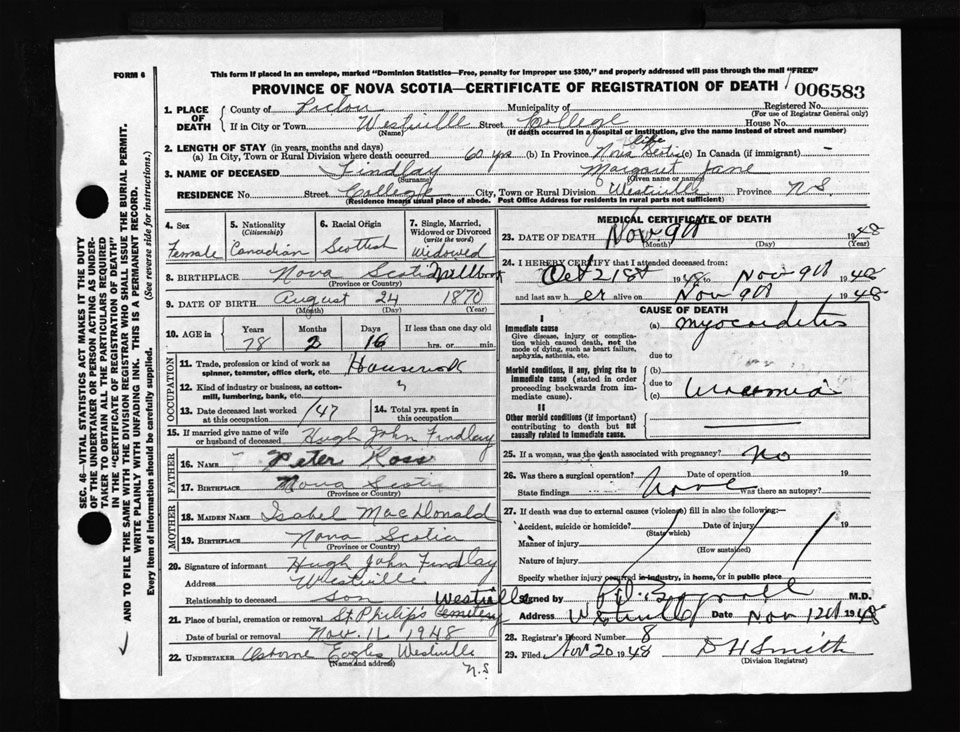 FORM 6
This form if placed in an envelope, marked "Dominion Statistics—Free, penalty for improper use $300," and properly addressed will pass through the mail "FREE"
PROVINCE OF NOVA SCOTIA—CERTIFICATE OF REGISTRATION OF DEATH
006583
1. PLACE OF DEATH
County of Pictou Municipality of Registered No.
(For use of Registrar General only)
If in City or Town Westville Street College House No.
(Name) (If death occurred in a hospital or institution, give the name instead of street and number)
2. LENGTH OF STAY (in years, months and days)
(a) In City, Town or Rural Division where death occurred 60 yrs (b) In Province life Nova Scotia (c) In Canada (if immigrant) —
3. NAME OF DECEASED Findlay Margaret Jane
(Surname) (Given name or names)
RESIDENCE No. Street College City, Town or Rural Division Westville Province N.S.
(Residence means usual place of abode. Post Office Address for residents in rural parts not sufficient)
4. Sex
Female
5. Nationality (Citizenship)
Canadian
6. Racial Origin
Scottish
7. Single, Married, Widowed or Divorced (write the word)
Widowed
8. BIRTHPLACE Nova Scotia Millbrook
(Province or Country)
9. DATE OF BIRTH August 24 1870
(Month) (Day) (Year)
10. AGE in
Years Months Days If less than one day old
78 2 16 hrs. or min.
OCCUPATION
11. Trade, profession or kind of work as spinner, teamster, office clerk, etc. Housework
12. Kind of industry or business, as cotton-mill, lumbering, bank, etc.
13. Date deceased last worked at this occupation 1/47
14. Total yrs. spent in this occupation
15. If married give name of wife or husband of deceased Hugh John Findlay
FATHER
16. NAME Peter Ross
17. BIRTHPLACE Nova Scotia
(Province or Country)
MOTHER
18. MAIDEN NAME Isabel MacDonald
19. BIRTHPLACE Nova Scotia
(Province or Country)
20. Signature of informant Hugh John Findlay
Address Westville
Relationship to deceased son
21. Place of burial, cremation or removal St. Philip's Cemetery Westville
Date of burial or removal Nov. 11 1948
22. UNDERTAKER Osborne Eagles Westville
(Name and address) N.S
MEDICAL CERTIFICATE OF DEATH
23. DATE OF DEATH Nov 9th 1948
(Month) (Day) (Year)
24. I HEREBY CERTIFY that I attended deceased from:
Oct 21st 1948 to Nov 9th 1948
and last saw her alive on Nov 9th 1948
CAUSE OF DEATH
I
Immediate cause
Give disease, injury or complication which caused death, not the mode of dying, such as heart failure, asphyxia, asthenia, etc.
(a) Myocarditis
due to
Morbid conditions, if any, giving rise to immediate cause (stated in order proceeding backwards from immediate cause).
(b)
due to
(c) Uraemia
II
Other morbid conditions (if important) contributing to death but not causally related to immediate cause.
25. If a woman, was the death associated with pregnancy? No
26. Was there a surgical operation? Date of operation 19
State findings None Was there an autopsy?
27. If death was due to external causes (violence) fill in also the following:—
Accident, suicide or homicide? Date of injury 19
(State which)
Manner of injury
(How sustained)
Nature of injury
Specify whether injury occurred in industry, in home, or in public place
Signed by M.D.
Address Westville Date Nov 12th 1948
28. Registrar's Record Number 8
29. Filed Nov 20 1948 D H Smith
(Division Registrar)
SEC. 46—VITAL STATISTICS ACT MAKES IT THE DUTY
OF THE UNDERTAKER OR PERSON ACTING AS UNDER-
TAKER TO OBTAIN ALL THE PARTICULARS REQUIRED
IN THE "CERTIFICATE OF REGISTRATION OF DEATH"
AND TO FILE THE SAME WITH THE DIVISION REGISTRAR WHO SHALL ISSUE THE BURIAL PERMIT.
WRITE PLAINLY WITH UNFADING INK. THIS IS A PERMANENT RECORD.
Every item of information should be carefully supplied. (See reverse side for instructions.)